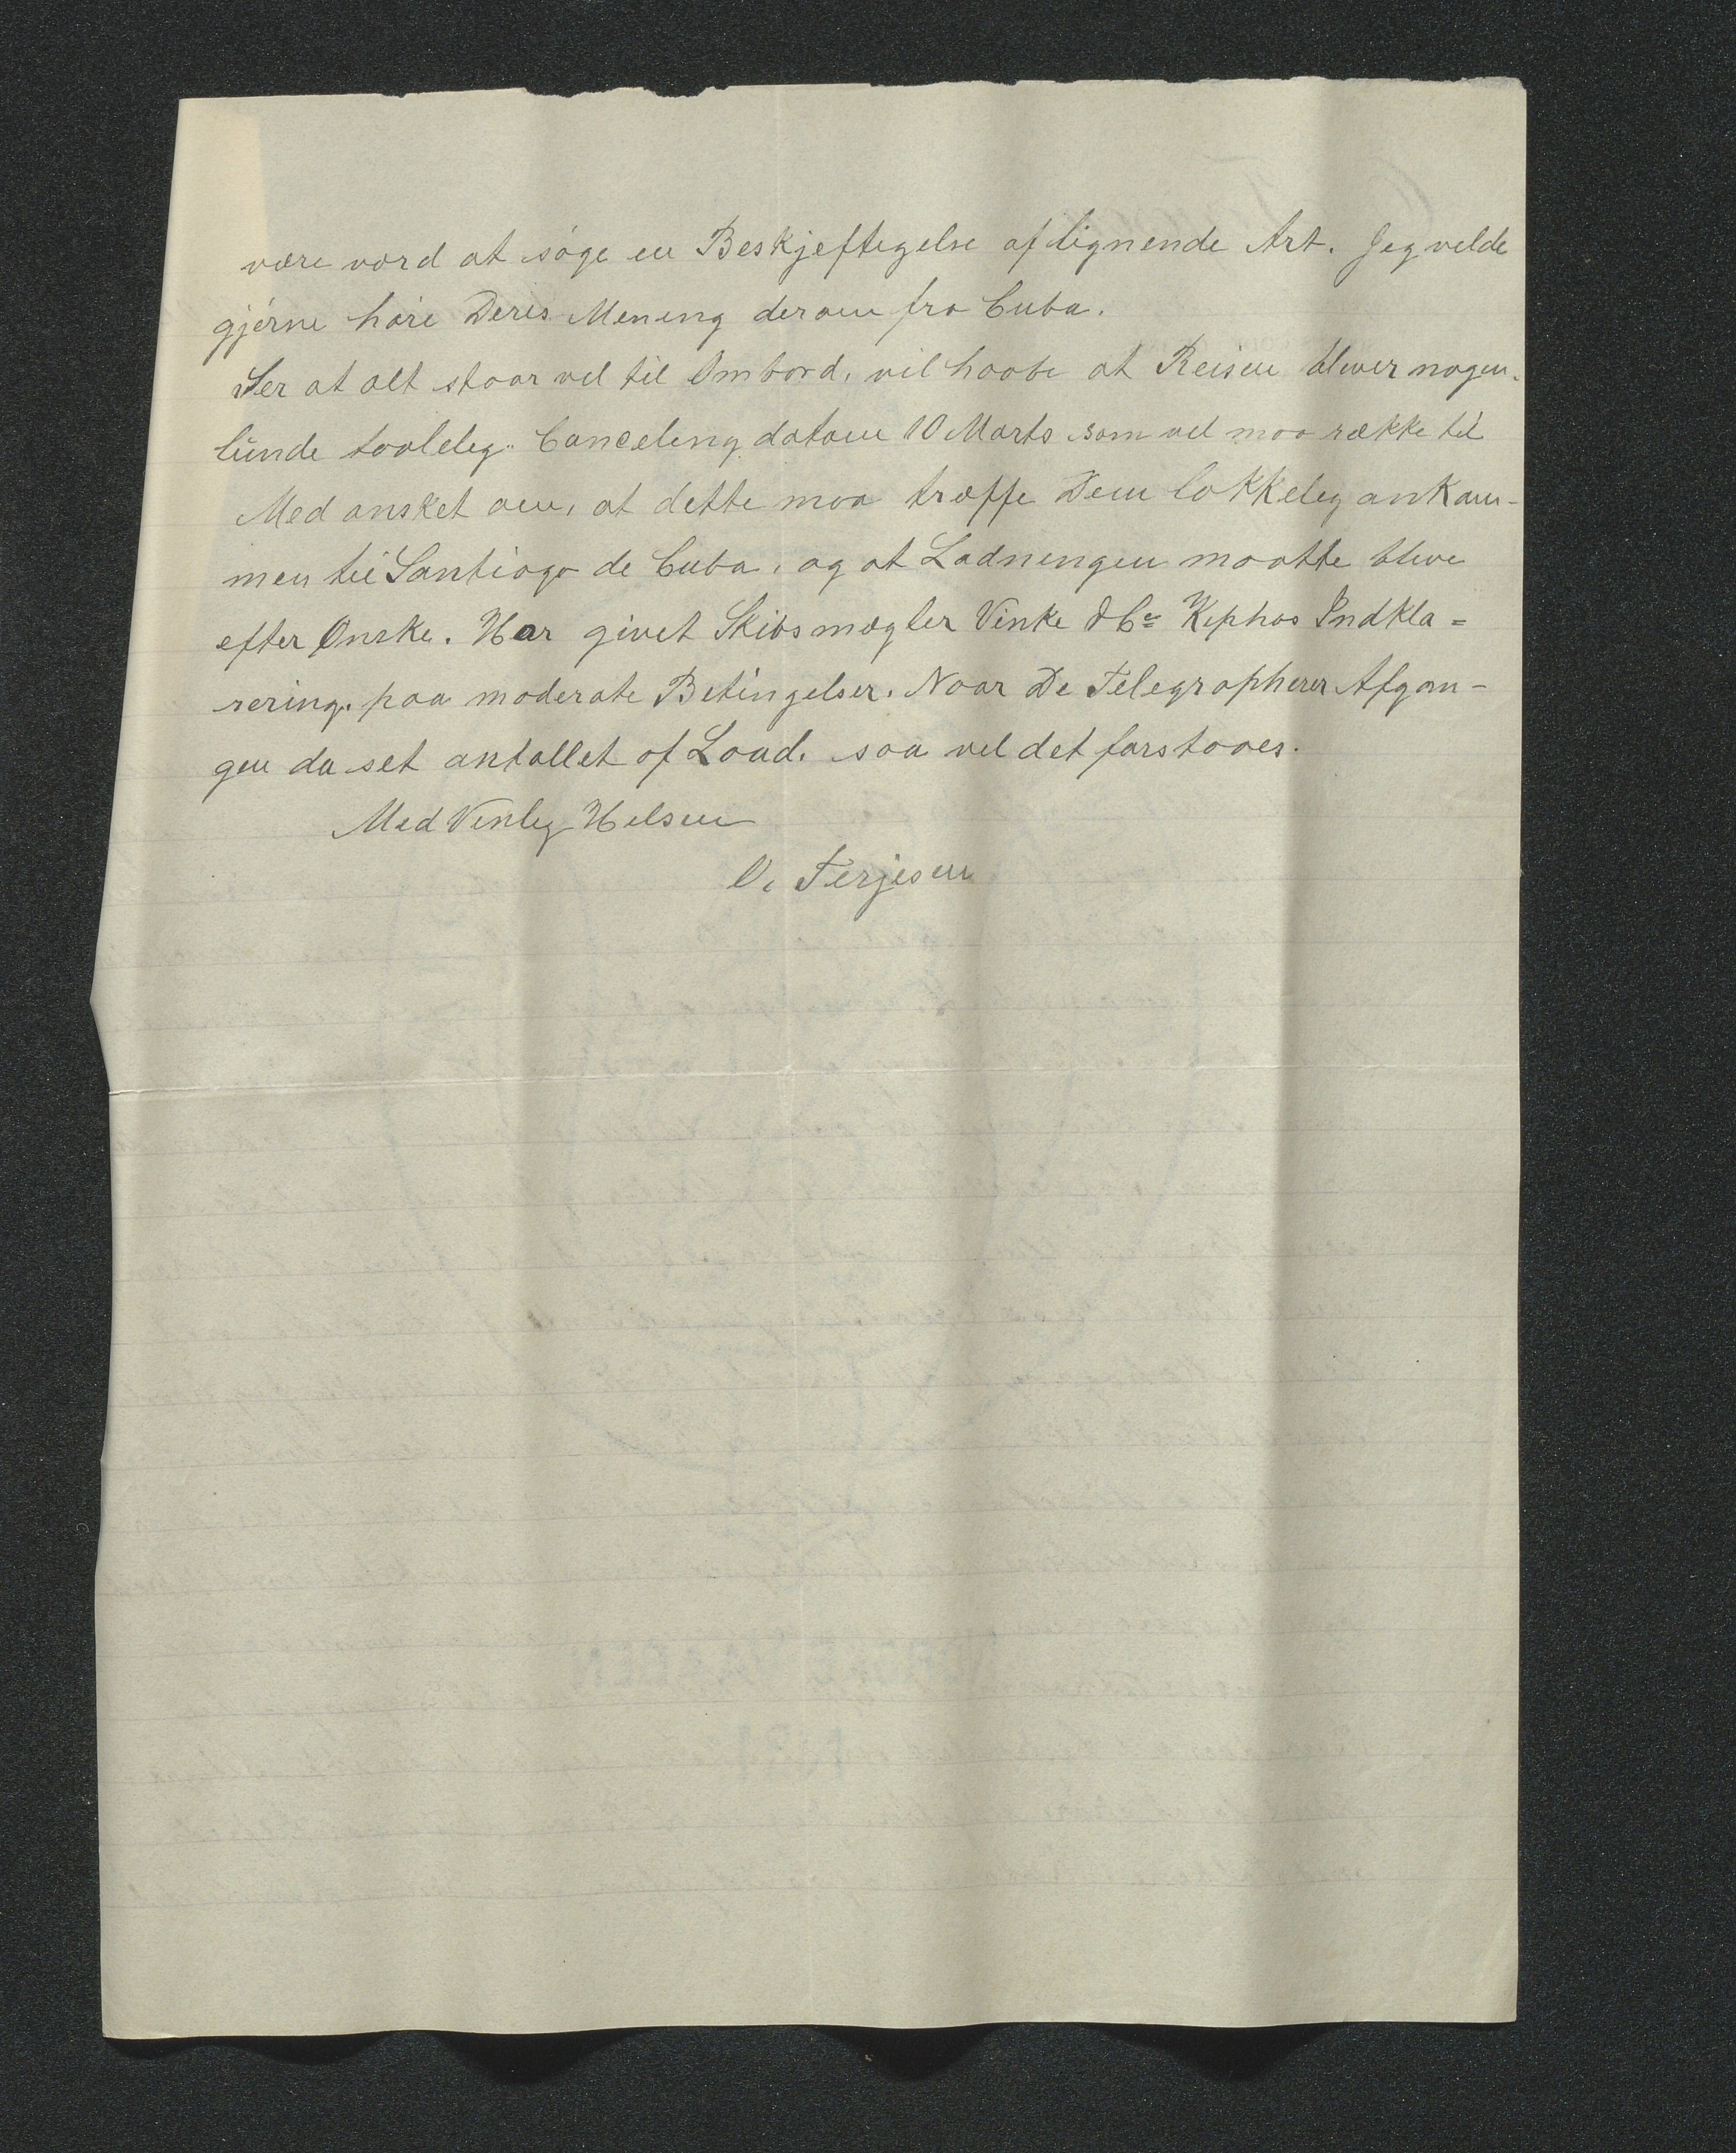 være værd at søge en Beskjeftigelse af lignende Art. Jeg vilde
gjérne høre Deres Mening derom fra Cuba.
Ser at alt staar vel til Ombord, vil haabe at Reisen bliver nogen-
lunde taalelig. Canceling datoen 10 Marts som vel maa række til
Med ønsket om, at dette maa træffe Dem lykkelig ankom-
men til Santiago de Cuba, og at Ladningen maatte blive
efter Ønske. Har givet Skibsmægler Vinke & Co Indkla=
rering. paa moderate Betingelser. Naar De Telegrapherer Afgan-
gen da set antallet af Load. saa vil det forstaaes.
Med Venlig Hilsen
O. Terjesen